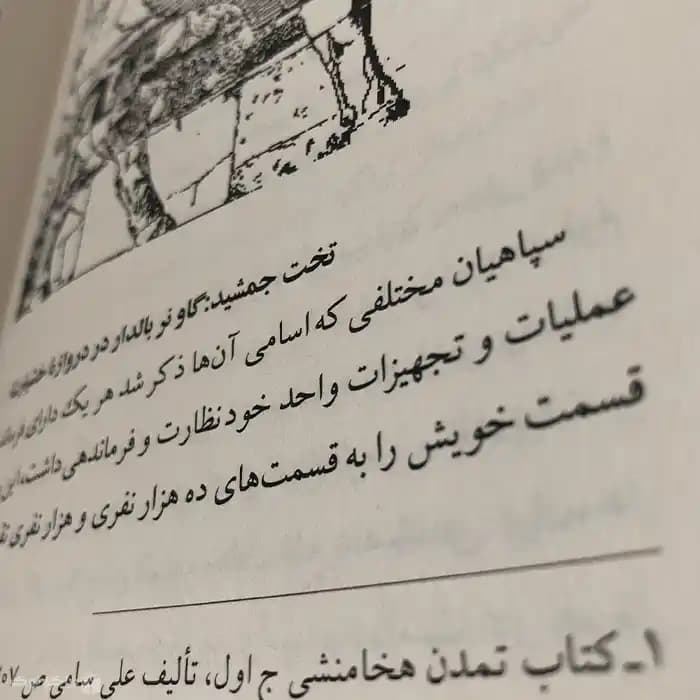 تخت جمشید: گاو نر بالدار در دروازهٔ
سپاهیان مختلفی که اسامی آن‌ها ذکر شد هر یک دارای
عملیات و تجهیزات واحد خود نظارت و فرماندهی داشت، این
قسمت خویش را به قسمت‌های ده هزار نفری و هزار نفری
۱ـ کتاب تمدن هخامنشی ج اول، تألیف علی سامی ص